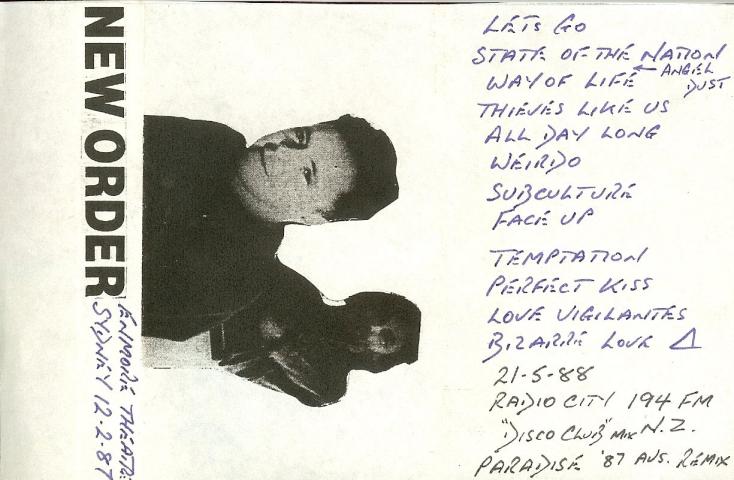 NEW ORDER
ENMORE THEATRE
SYDNEY 12.2.87
LETS GO
STATE OF THE NATION
WAY OF LIFE ← ANGEL DUST
THIEVES LIKE US
ALL DAY LONG
WEIRDO
SUBCULTURE
FACE UP
TEMPTATION
PERFECT KISS
LOVE VIGILANTES
BIZARRE LOVE △
21-5-88
RADIO CITY 194 FM
"DISCO CLUB" MIX N.Z.
PARADISE '87 AUS. REMIX